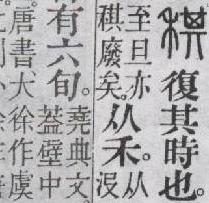 稘復其時也。
至旦亦
稘廢矣。
从禾。
从
没
有六旬。
堯典文。
蓋壁中
唐書大徐作虞